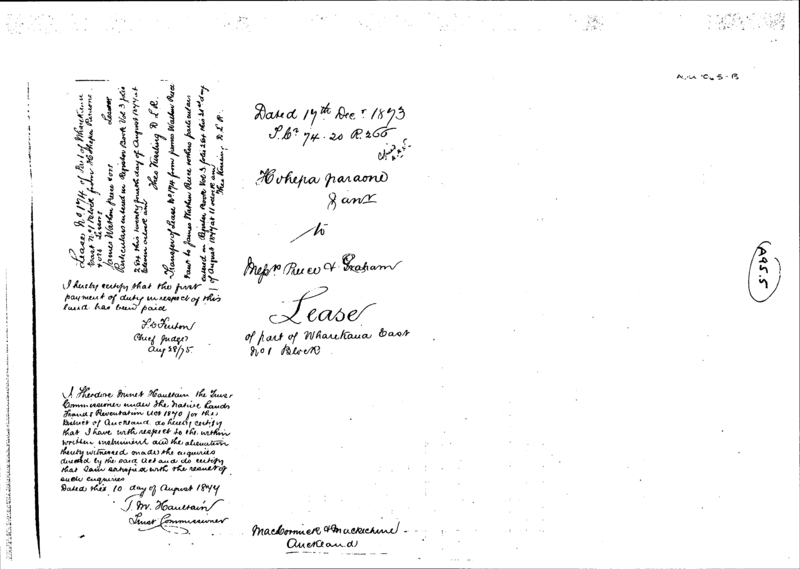 Lease No 174 of Part of Wharekaua
East No 1 Block from Hohepa Paraone
& ors Lessors
James Watson Reece & ors Lessees
Particulars entered on Register Book Vol 3 folio
251 this twenty fourth day of August 1877 at
Eleven oclock am
Theo Kissling D L R.
Transfer of Lease No 174 from James Watson Reece
to James Watson Reece & others particulars
entered on Register Book Vol 3 folio 251 this 24th day
of August 1877 at 11 oclock am
Theo Kissling D L R
I hereby certify that the first
payment of duty in respect of this
land has been paid
F. D. Fenton
Chief Judge
Aug 28/75.
I Theodore Minet Haultain the Trust
Commissioner under the Native Lands
Frauds Prevention Act 1870 for the
District of Auckland do hereby certify
that I have with respect to the within
written instrument and the alienation
thereby witnessed made the enquiries
directed by the said Act and do certify
that I am satisfied with the result of
such enquiries
Dated this 10 day of August 1877
T. M. Haultain
Trust Commissioner
Dated 17th Decr 1873
74. 20 P. 265
Hohepa paraone
& anr
to
Messrs Reece & Graham
Lease
of part of Wharekaua East
No 1 Block
MacCormick & Mackechnie
Auckland
A95.5